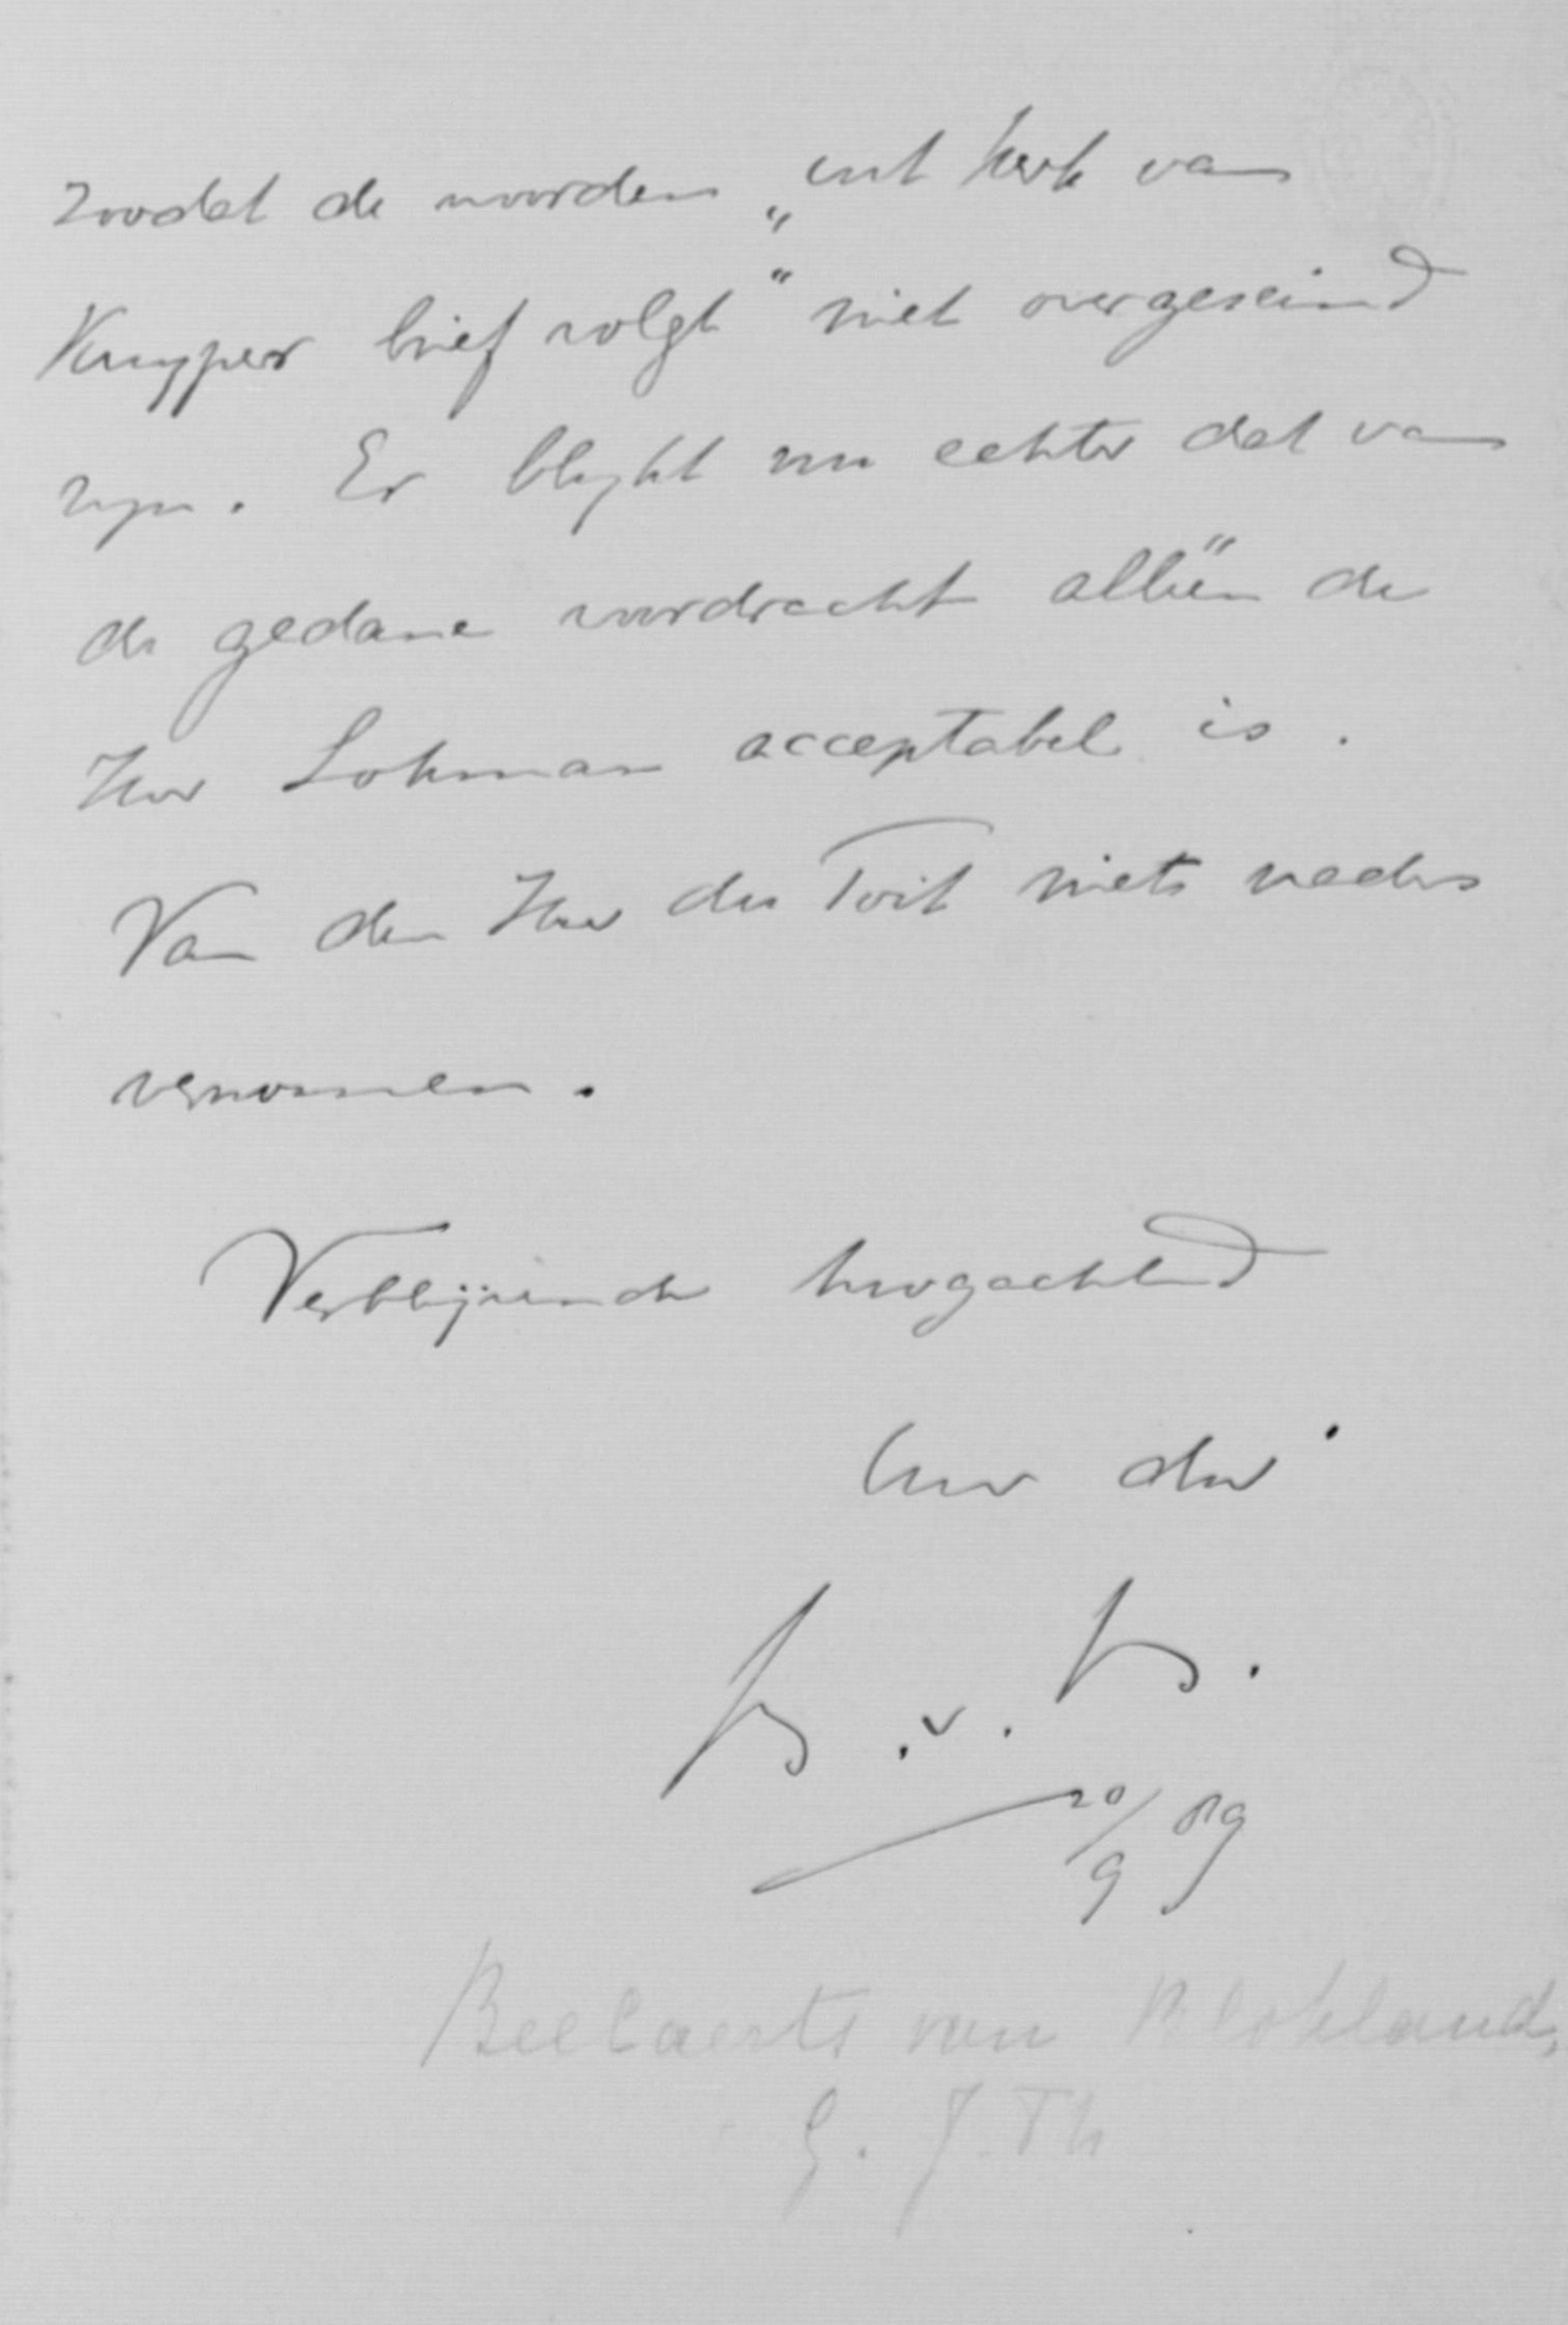 zoodat de woorden „uit kerk van
Kuyper brief volgt" niet overgeseind
zyn. Er blykt nu echter dat van
de gedane voordracht alleën de
Heer Lohman acceptabel is.
Van den Heer du Toit niets naders
vernomen.
Verblijvende hoogachtend
Uw dw
B. v. B.
20/9 89
Beelaerts van Blokland,
G. J. Th